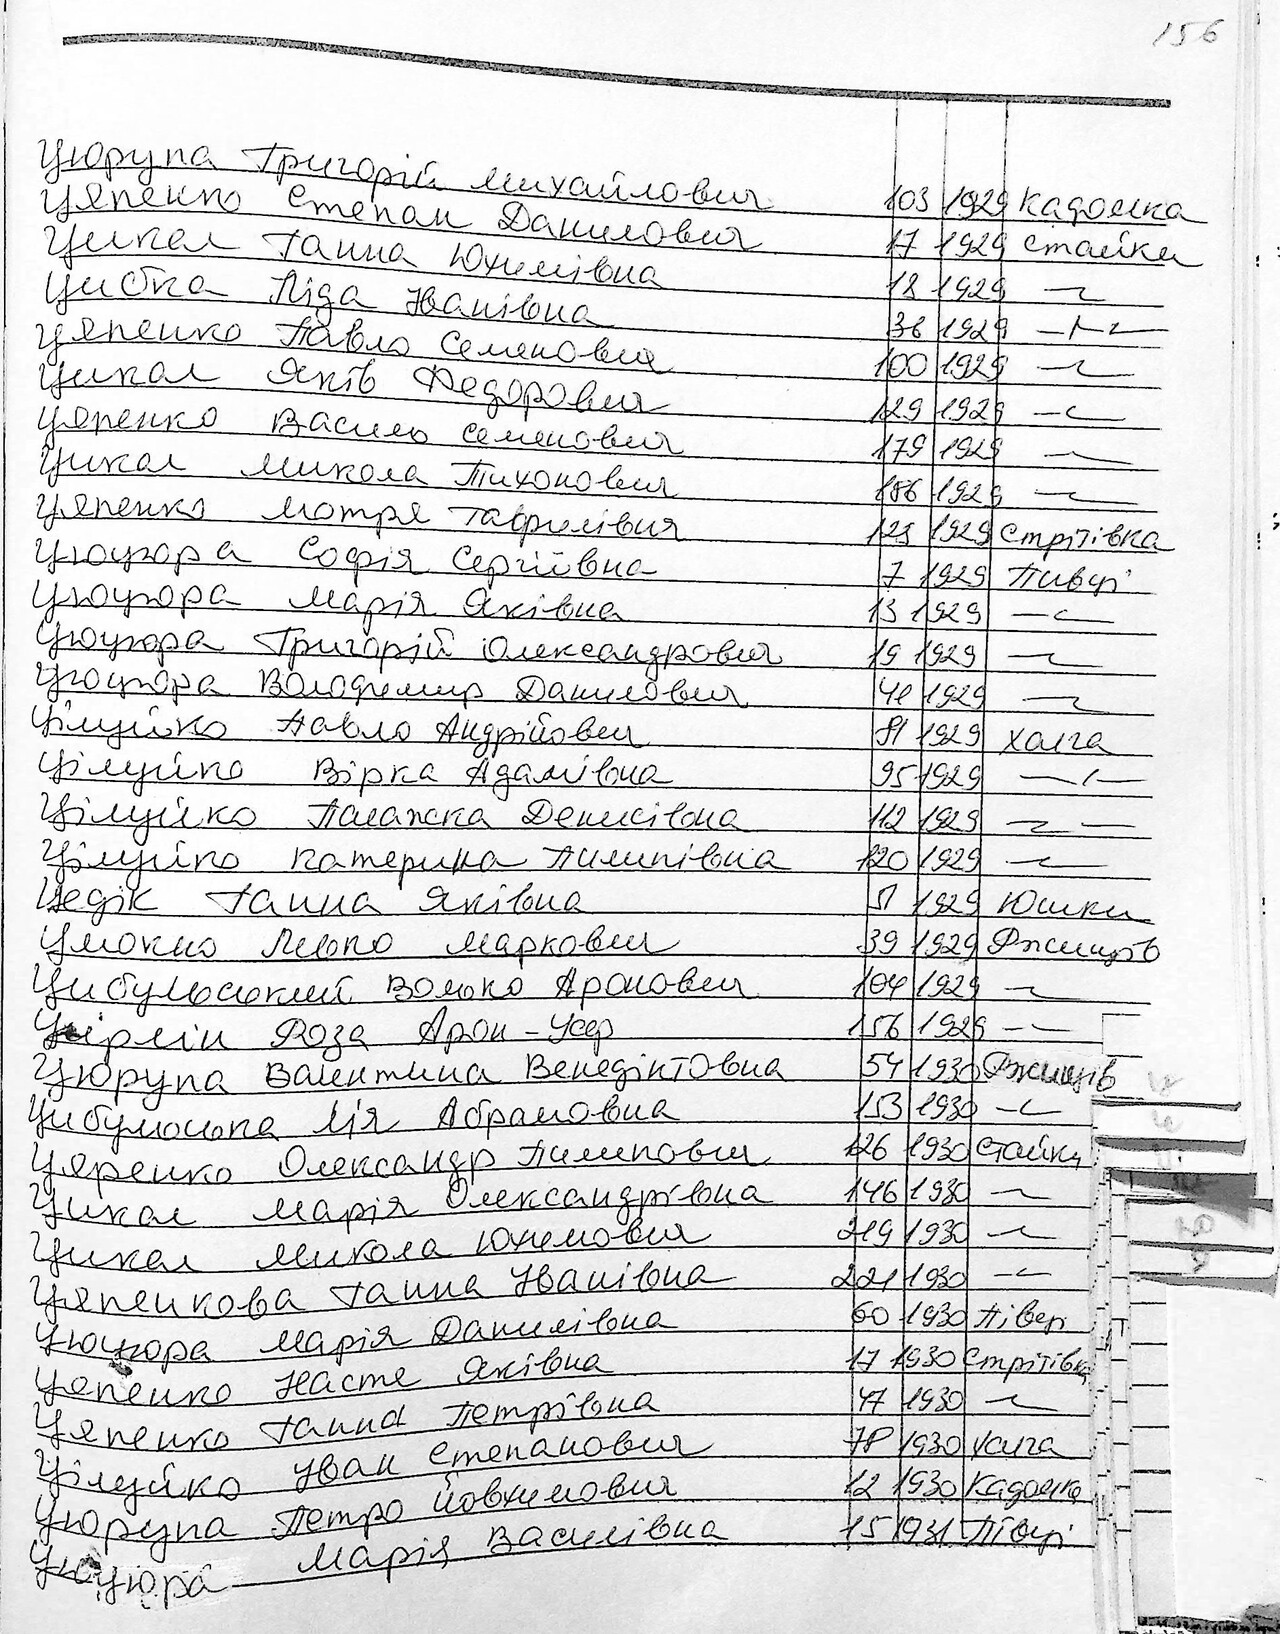 156
Цюрупа Григорій Михайлович 103 1929 Кадомка
Цяпенко Степан Данилович 17 1929 Стайки
Цикал Ганна Юхимівна 18 1929 —〃—
Цибка Ліда Іванівна 36 1929 —〃—
Цяпенко Павло Семенович 100 1929 —〃—
Цикал Яків Федорович 129 1929 —〃—
Цяпенко Василь Семенович 179 1929 —〃—
Цикал Микола Тихонович 186 1929 —〃—
Цяпенко Мотря Гаврилівня 123 1929 Стрітівка
Цюцюра Софія Сергіївна 7 1929 Пивці
Цюцюра Марія Яківна 13 1929 —〃—
Цюцюра Григорій Олександрович 19 1929 —〃—
Цюцюра Володимир Данилович 41 1929 —〃—
Цілуйко Павло Андрійович 81 1929 Халча
Цілуйко Вірка Адамівна 95 1929 —〃—
Цілуйко Палажка Денисівна 112 1929 —〃—
Цілуйко Катерина Пилипівна 120 1929 —〃—
Цедік Ганна Яківна 51 1929 Юшки
Цмокно Левко Маркович 39 1929 Ржищів
Цибульський Волько Аронович 104 1929 —〃—
Цирлін Роза Арон-Усер 156 1929 —〃—
Цюрупа Валентина Венедіктовна 54 1930 Ржищів
Цибульська Лія Абрамовна 153 1930 —〃—
Цяренко Олександр Пилипович 126 1930 Стайки
Цикал Марія Олександрівна 146 1930 —〃—
Цикал Микола Юхимович 219 1930 —〃—
Цяпенкова Ганна Іванівна 221 1930 —〃—
Цюцюра Марія Данилівна 60 1930 Півці
Цяпенко Настя Яківна 17 1930 Стрітівка
Цяпенко Ганна Петрівна 47 1930 —〃—
Цілуйко Іван Степанович 78 1930 Халча
Цюрупа Петро Йовхимович 12 1930 Кадомка
Цюцюра Марія Василівна 15 1931 Півці